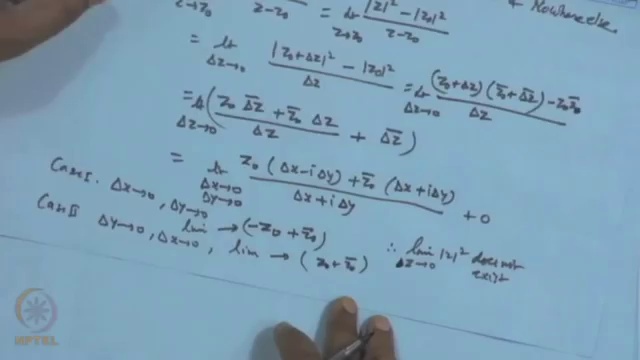 & Nowhere else.
z→z₀ z-z₀ = lt z→z₀ |z|²-|z₀|² / z-z₀
= lt Δz→0 |z₀+Δz|² - |z₀|² / Δz = lt Δz→0 (z₀+Δz)(z̄₀+Δz̄) - z₀z̄₀ / Δz
= lt Δz→0 ( z₀ Δz̄ + z̄₀ Δz / Δz + Δz̄ )
= lt Δx→0 Δy→0 z₀ (Δx-iΔy) + z̄₀ (Δx+iΔy) / Δx+iΔy + 0
Case I. Δx→0, Δy→0 lim → (-z₀ + z̄₀)
Case II Δy→0, Δx→0, lim → (z₀+z̄₀) ∴ lim Δz→0 |z|² does not exist
NPTEL